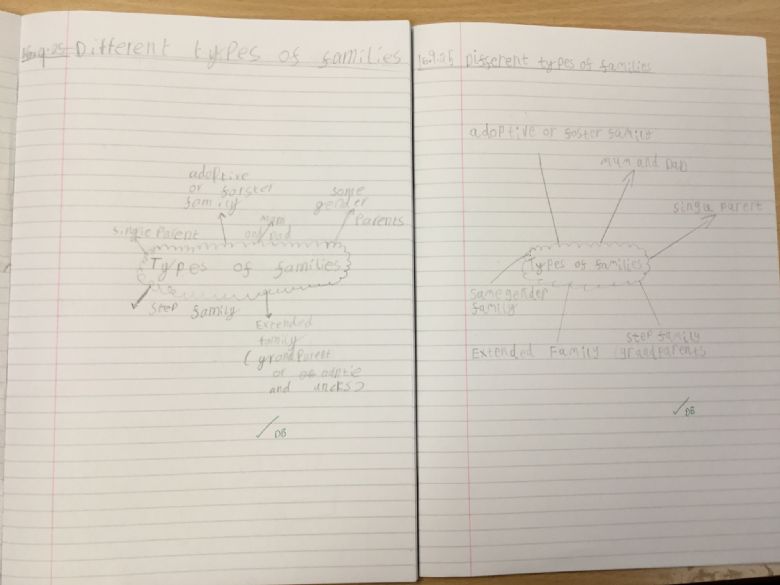 16.9.25 Different types of families
adoptive
or forster
family
same
gender
Parents
mum
and dad
single Parent
Types of families
Step family
Extended
family
(grandParent
or
and uncks)
✓ DB
16.9.25 Different types of families
adoptive or foster family
mum and Dad
single Parent
Types of families
same gender
family
Step family
Extended Family (grandparents
✓ DB